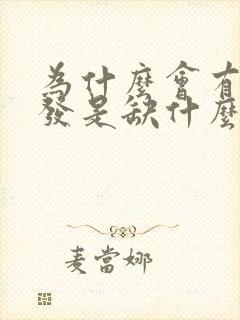 為什麼會有
發是缺什麼
麦當娜